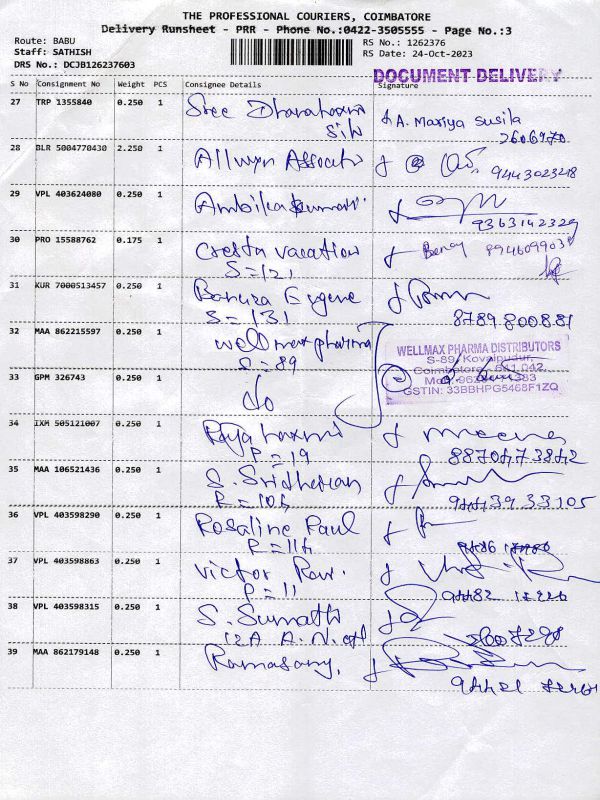 THE PROFESSIONAL COURIERS, COIMBATORE
Delivery Runsheet - PRR - Phone No.:0422-3505555 - Page No.:3
Route: BABU
Staff: SATHISH
DRS No.: DCJB126237603
RS No.: 1262376
RS Date: 24-Oct-2023
DOCUMENT DELIVERY
S No Consignment No Weight PCS Consignee Details Signature
27 TRP 1355840 0.250 1 Sree A. Mariya Susila
2606970
28 BLR 5004770430 2.250 1 Allwyn
9443023218
29 VPL 403624080 0.250 1
9363142329
30 PRO 15588762 0.175 1 Cresta vacation
S=121
31 KUR 7000513457 0.250 1 Eugene
S=131 8789800881
32 MAA 862215597 0.250 1 wellmax pharma
S=89
WELLMAX PHARMA DISTRIBUTORS
S-89, Kovaipudur,
Coimbatore - 641 042.
GSTIN: 33BBHPG5468F1ZQ
33 GPM 326743 0.250 1 do
34 IXM 505121007 0.250 1 meena
P=19
35 MAA 106521436 0.250 1 S. Sridharan
36 VPL 403598290 0.250 1 Rosaline Paul
37 VPL 403598863 0.250 1 Victor
P=11
38 VPL 403598315 0.250 1 S. Sumathi
12A A.N.
39 MAA 862179148 0.250 1 Ramasamy,